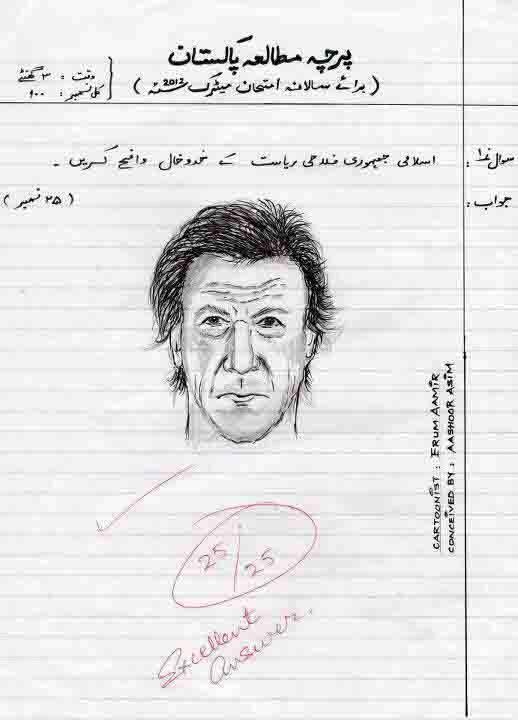 پرچہ مطالعہ پاکستان
وقت : ۳ گھنٹے
( برائے سالانہ امتحان میٹرک 2012 )
کل نمبر : ۱۰۰
سوال نمبر ۱ : اسلامی جمہوری فلاحی ریاست کے خدوخال واضح کریں ۔
جواب : ( ۲۵ نمبر )
CARTOONIST : ERUM AAMIR
CONCEIVED BY : AASHOOR ASIM
25/25
Excellent
Answer.